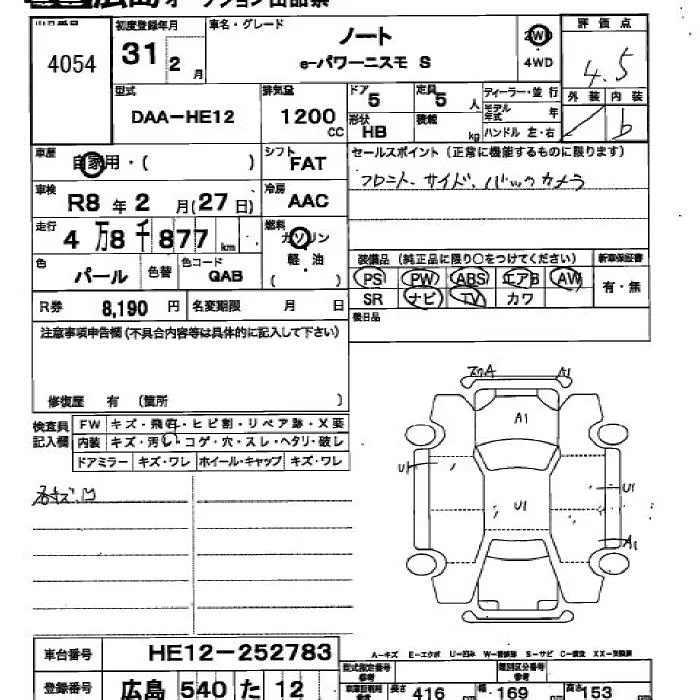 広島 オークション出品票
4054
初度登録年月
31 2月
車名・グレード
ノート
e-パワーニスモ S
2WD
4WD
評価点
4.5
型式
DAA-HE12
排気量
1200 cc
ドア 5
定員 5 人
形状 HB
積載 kg
ディーラー・並行
モデル年式 年
ハンドル 左・右
外装 内装
b
車歴
自家用・( )
シフト
FAT
セールスポイント (正常に機能するものに限ります)
フロント、サイド、バックカメラ
車検
R8年2月(27日)
冷房
AAC
走行
4万8千877km
燃料
ガソリン
軽・油
( )
色
パール
色替
色コード
QAB
装備品 (純正品に限り○をつけてください)
新車保証書
PS PW ABS エアB AW
SR ナビ TV カワ
有・無
R券 8,190円
名変期限 月 日
後日品
注意事項申告欄 (不具合内容等は具体的に記入して下さい)
修復歴 有 (箇所 )
検査員記入欄
FW キズ・飛石・ヒビ割・リペア跡・X要
内装 キズ・汚い・コゲ・穴・スレ・ヘタリ・破レ
ドアミラー キズ・ワレ ホイール・キャップ キズ・ワレ
A1
A1
U1
U
U1
A1
車台番号
HE12-252783
A-キズ E-エクボ U-凹み S-サビ
型式指定番号
類別区分番号
登録番号
広島 540 た 12
長さ 416 cm 幅 169 cm 高さ 153 cm